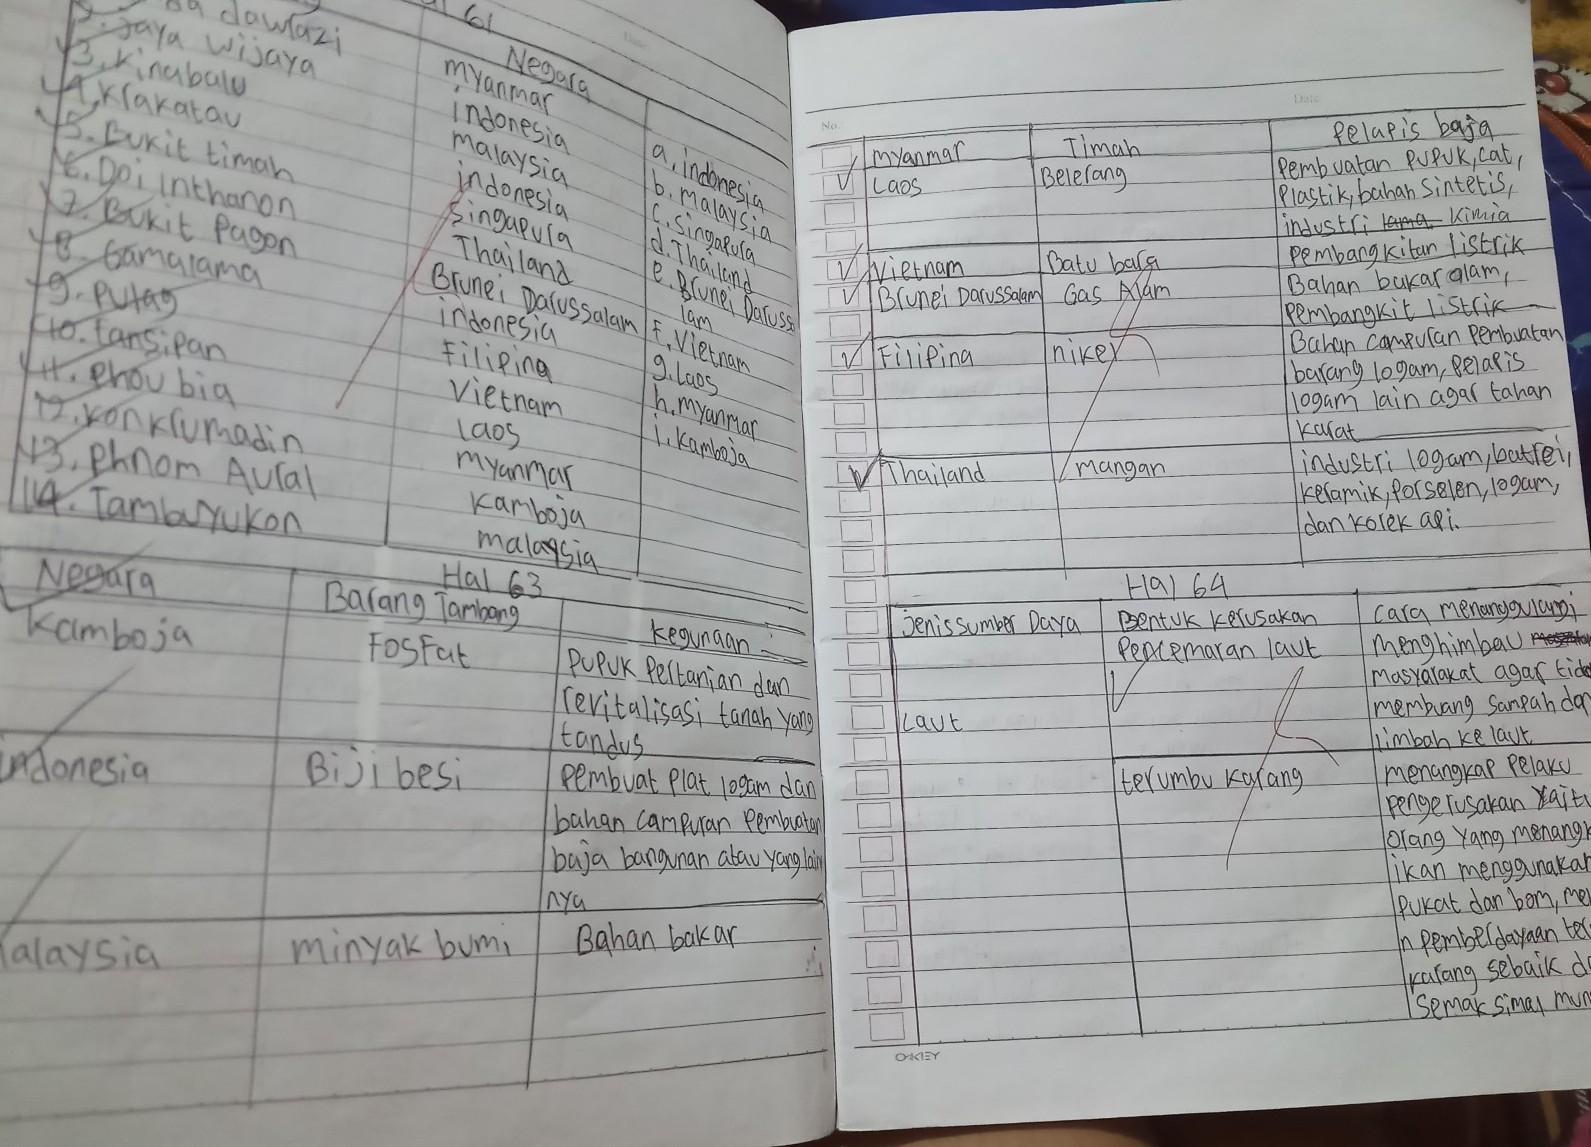 61
Negara
dawlazi
Jaya wijaya
myanmar
3. Kinabalu
indonesia
4. Krakatau
malaysia
a. indonesia
5. Bukit timah
indonesia
b. malaysia
6. Doi Inthanon
Singapura
c. Singapura
7. Bukit Pagon
Thailand
d. Thailand
8. Gamalama
Brunei Darussalam
e. Brunei Daruss
lam
9. Pulag
indonesia
f. Vietnam
10. Fansipan
Filipina
g. Laos
11. Phou bia
Vietnam
h. myanmar
12. Konkrumadin
Laos
i. Kamboja
13. Phnom Aural
myanmar
14. Tambuyukon
Kamboja
malaysia
Hal 63
Negara
Barang Tambang
kegunaan
Kamboja
Fosfat
Pupuk Pertanian dan
revitalisasi tanah yang
tandus
indonesia
Biji besi
Pembuat Plat logam dan
bahan campuran Pembuatan
baja bangunan atau yang lain
nya
alaysia
minyak bumi
Bahan bakar
No.
Date
myanmar
Timah
Pelapis baja
Laos
Belerang
Pembuatan PUPUK, cat,
Plastik, bahan sintetis,
industri kimia
Vietnam
Batu bara
Pembangkitan listrik
Brunei Darussalam
Gas Alam
Bahan bakar alam,
Pembangkit listrik
Filipina
nikel
Bahan campuran Pembuatan
barang logam, Pelapis
logam lain agar tahan
karat
Thailand
mangan
industri logam, batrei,
keramik, Porselen, logam,
dan korek api.
Hal 64
jenis sumber Daya
Bentuk kerusakan
Cara menanggulangi
Laut
Pencemaran laut
menghimbau
masyarakat agar tida
membuang sampah dan
limbah ke laut
terumbu karang
menangkap Pelaku
Pengerusakan Yaitu
orang Yang menangk
ikan menggunakan
Pukat dan bom, me
n Pemberdayaan ter
karang sebaik d
Semaksimal mun
OKEY